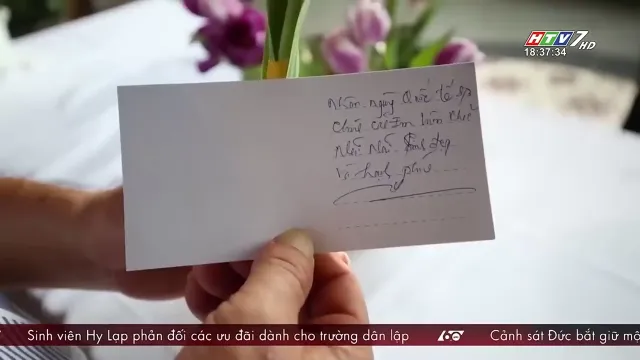 HTV7 HD
18:37:34
Nhân ngày Quốc tế
Chúc em luôn
Mãi Mãi xinh đẹp
Và hạnh phúc
Sinh viên Hy Lạp phản đối các ưu đãi dành cho trường dân lập
60
Cảnh sát Đức bắt giữ